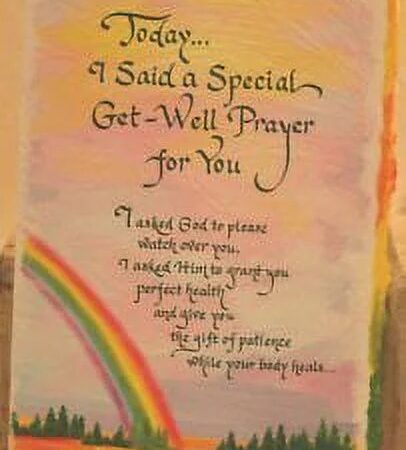 Today...
I Said a Special
Get-Well Prayer
for You
I asked God to please
watch over you.
I asked Him to grant you
perfect health
and give you
the gift of patience
while your body heals...